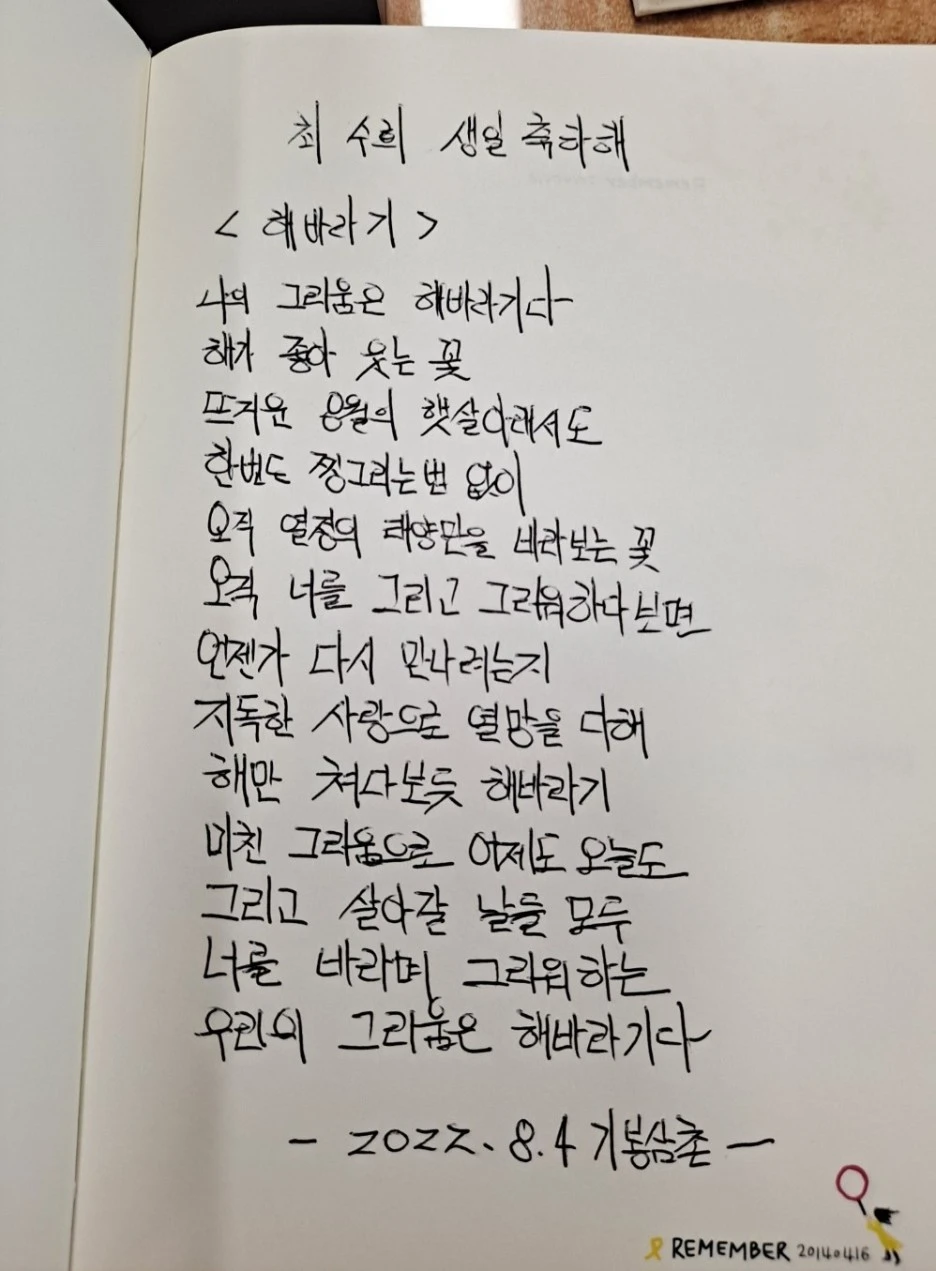 최 수희 생일 축하해
< 해바라기 >
나의 그리움은 해바라기다
해가 좋아 웃는 꽃
뜨거운 8월의 햇살아래서도
한번도 찡그리는법 없이
오직 열정의 태양만을 바라보는 꽃
오직 너를 그리고 그리워하다보면
언젠가 다시 만나려는지
지독한 사랑으로 열망을 다해
해만 쳐다보듯 해바라기
미친 그리움으로 어제도 오늘도
그리고 살아갈 날들 모두
너를 바라며 그리워하는
우리의 그리움은 해바라기다
- 2022. 8. 4 기봉삼촌 -
REMEMBER 20140416